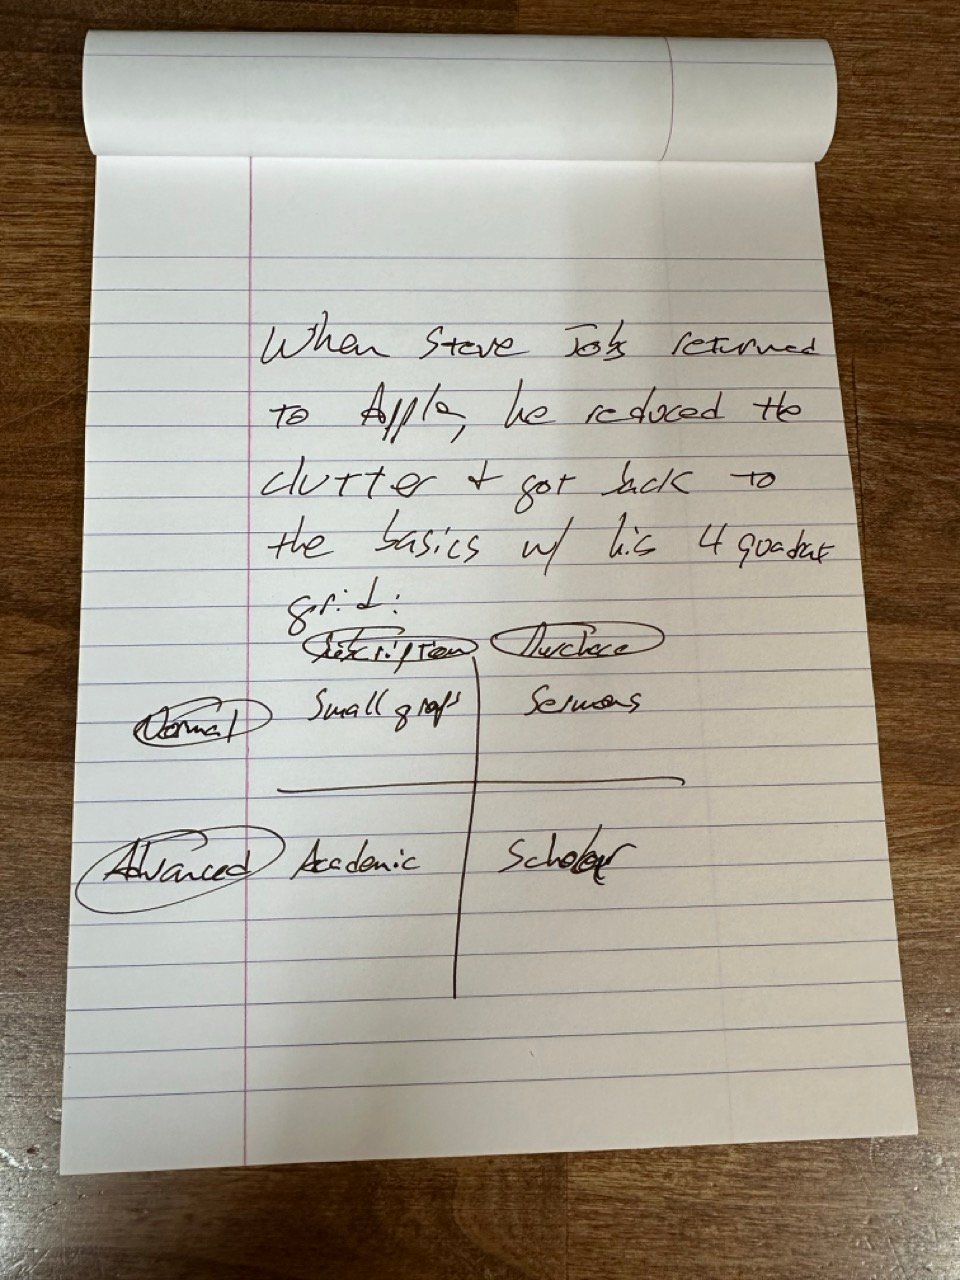 When Steve Jobs returned
to Apple, he reduced the
clutter & got back to
the basics w/ his 4
grid:
Purchase
Small groups Sermons
Normal
Advanced Academic Scholar